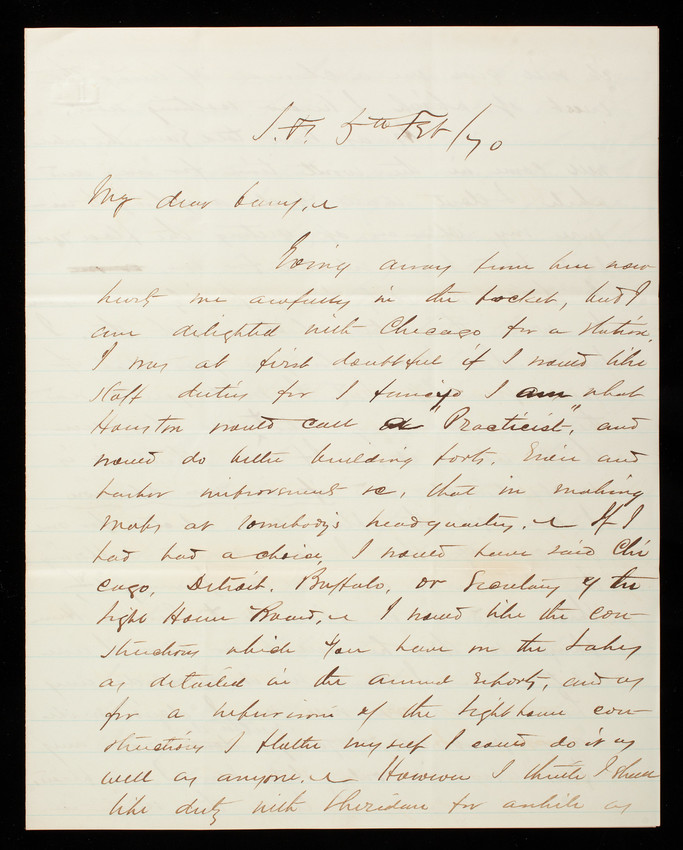 S.F. 5th Feb /70
My dear Casey,
Going away from here now
hurts me awfully in the pocket, but I
am delighted with Chicago for a station.
I was at first doubtful if I would like
staff duties for I fancy I am what
Houston would call a "Practicist", and
would do better building forts, River and
harbor improvement &c, than in making
maps at somebody's headquarters. If I
had had a choice I would have said Chi
cago, Detroit, Buffalo, or Secretary of the
Light House Board. I would like the con-
structions which you have on the Lakes
as detailed in the annual reports, and as
for a supervision of the lighthouse con-
structions I flatter myself I could do it as
well as anyone. However I think I shall
like duty with Sheridan for awhile as